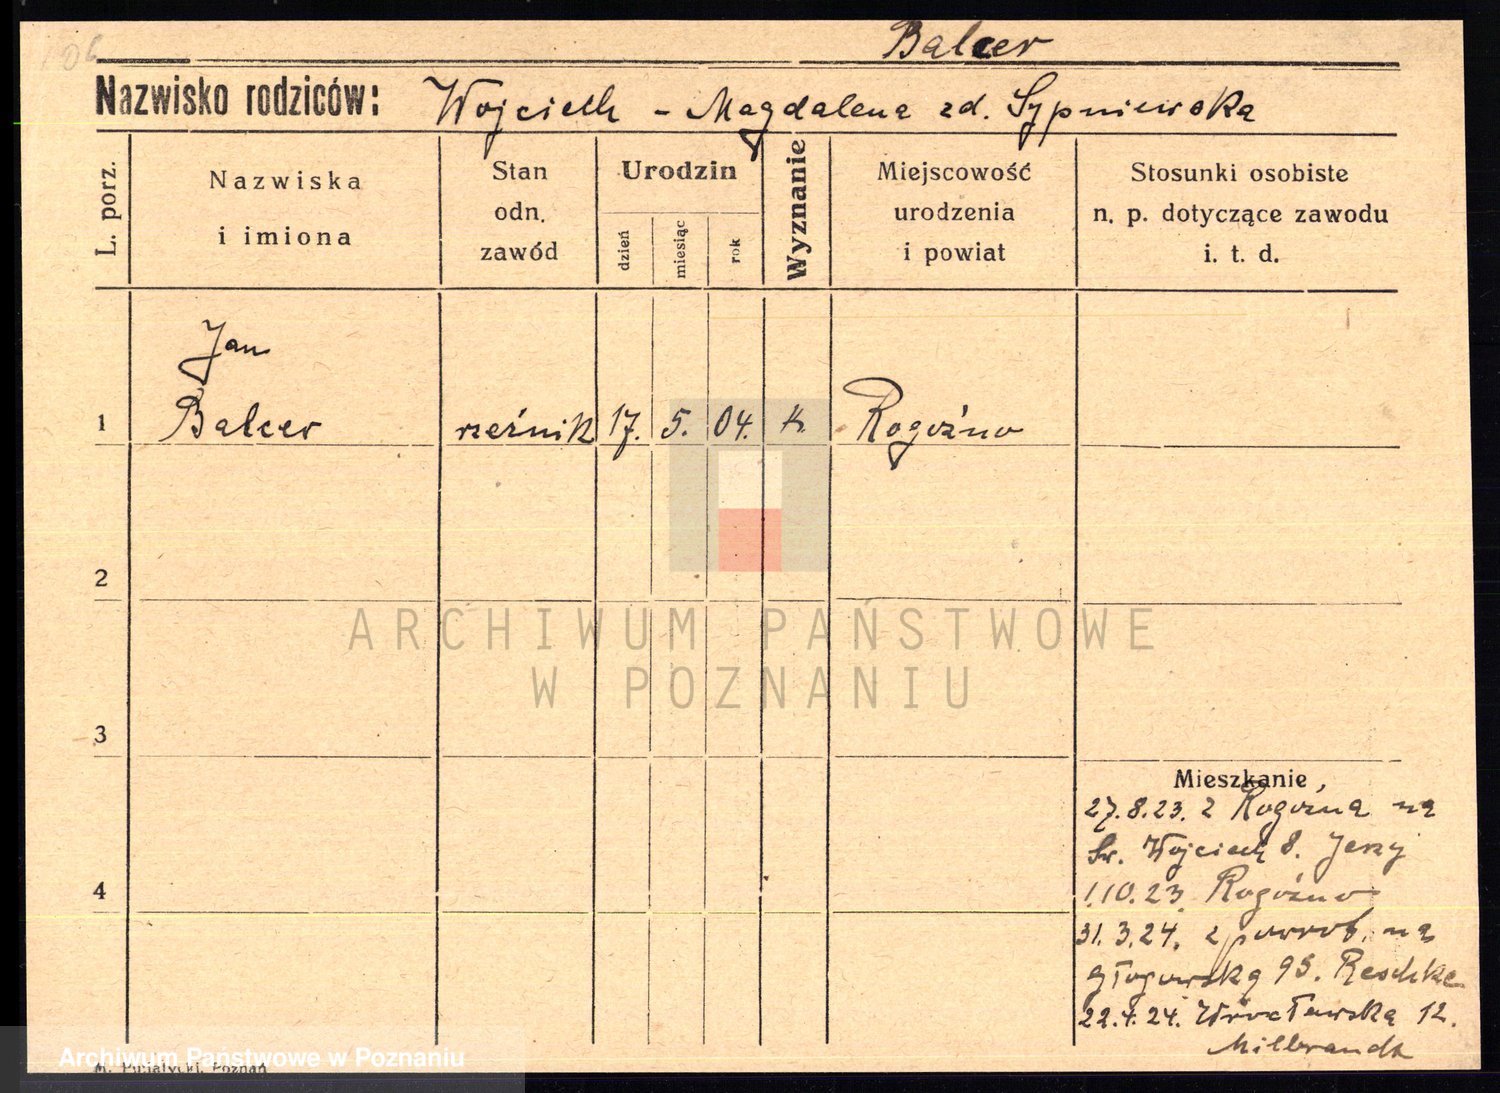 106
Balcer
Nazwisko rodziców: Wojciech - Magdalena zd. Sypniewska
L. porz.
Nazwiska
i imiona
Stan
odn.
zawód
Urodzin
dzień
miesiąc
rok
Wyznanie
Miejscowość
urodzenia
i powiat
Stosunki osobiste
n. p. dotyczące zawodu
i. t. d.
Jan
1 Balcer rzeźnik 17. 5. 04. k. Rogoźno
2
ARCHIWUM PAŃSTWOWE
W POZNANIU
3
Mieszkanie
27.8.23. z Rogoźna na
Św. Wojciech 8. Jerzy
4
1.10.23. Rogoźno
31.3.24. z powrot. na
głogowską 95. Reschke
22.4.24. Wrocławska 12.
Milbrandt
Archiwum Państwowe w Poznaniu
M. Putiatycki, Poznań